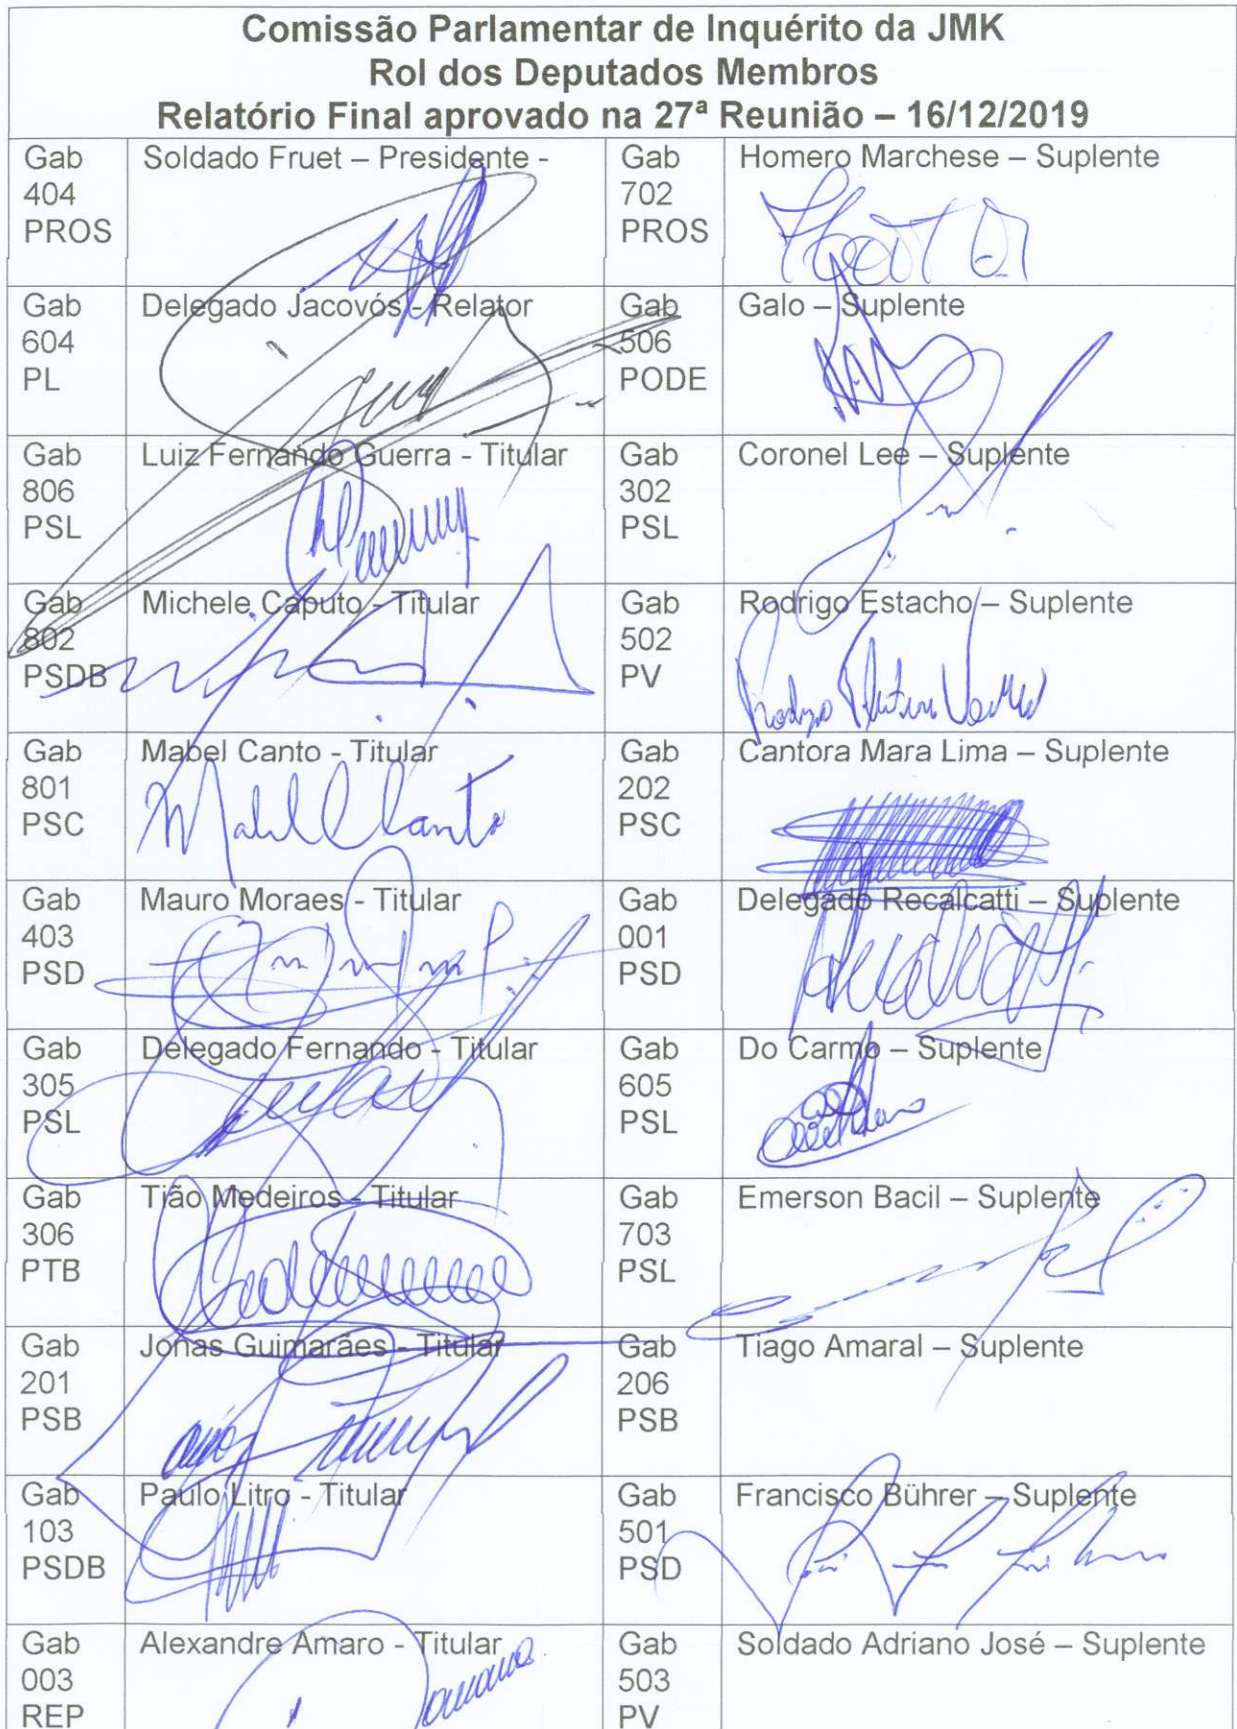 Comissão Parlamentar de Inquérito da JMK
Rol dos Deputados Membros
Relatório Final aprovado na 27ª Reunião – 16/12/2019
Gab 404 PROS
Soldado Fruet – Presidente -
Gab 702 PROS
Homero Marchese – Suplente
Gab 604 PL
Delegado Jacovós - Relator
Gab 506 PODE
Galo – Suplente
Gab 806 PSL
Luiz Fernando Guerra - Titular
Gab 302 PSL
Coronel Lee – Suplente
Gab 802 PSDB
Michele Caputo - Titular
Gab 502 PV
Rodrigo Estacho – Suplente
Gab 801 PSC
Mabel Canto - Titular
Mabel Canto
Gab 202 PSC
Cantora Mara Lima – Suplente
Gab 403 PSD
Mauro Moraes - Titular
Gab 001 PSD
Delegado Recalcatti – Suplente
Gab 305 PSL
Delegado Fernando - Titular
Gab 605 PSL
Do Carmo – Suplente
Gab 306 PTB
Tião Medeiros - Titular
Gab 703 PSL
Emerson Bacil – Suplente
Gab 201 PSB
Jonas Guimarães - Titular
Gab 206 PSB
Tiago Amaral – Suplente
Gab 103 PSDB
Paulo Litro - Titular
Gab 501 PSD
Francisco Bührer – Suplente
Gab 003 REP
Alexandre Amaro - Titular
Gab 503 PV
Soldado Adriano José – Suplente